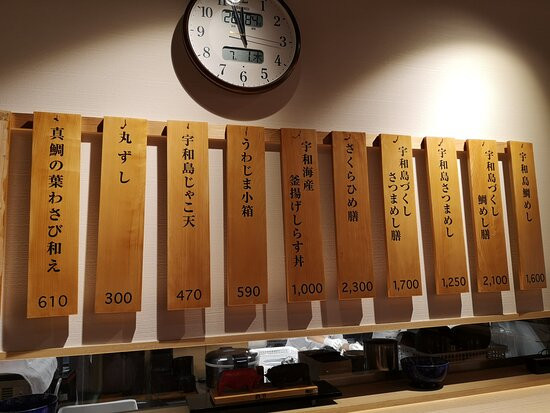 宇和島鯛めし
1,600
宇和島づくし
鯛めし膳
2,100
宇和島さつまめし
1,250
宇和島づくし
さつまめし膳
1,700
さくらひめ膳
2,300
宇和海産
釜揚げしらす丼
1,000
うわじま小箱
590
宇和島じゃこ天
470
丸ずし
300
真鯛の葉わさび和え
610